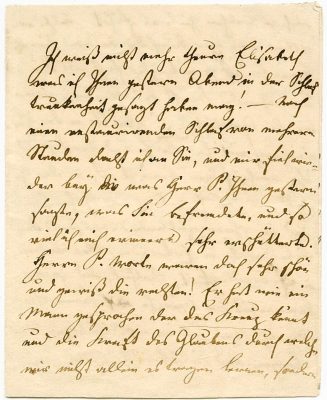 Ich weiß nicht mehr theure Elisabeth
was ich Ihnen gestern Abend in der Schlaf
trunkenheit gesagt haben mag! — Nach
einem restaurirenden Schlaf von mehreren
Stunden dacht ich an Sie, und mir fiel wie-
der bey was Herr P. Ihnen gestern
sagte, was Sie befremdete, und so
viel ich mich erinnere sehr erschütterte.
Herrn P. Worte waren doch sehr schön
und gewiß die rechten! Er hat wie ein
Mann gesprochen der das Kreuz kennt
und die Kraft des Glaubens durch welche
wir nicht allein es tragen lernen, sondern